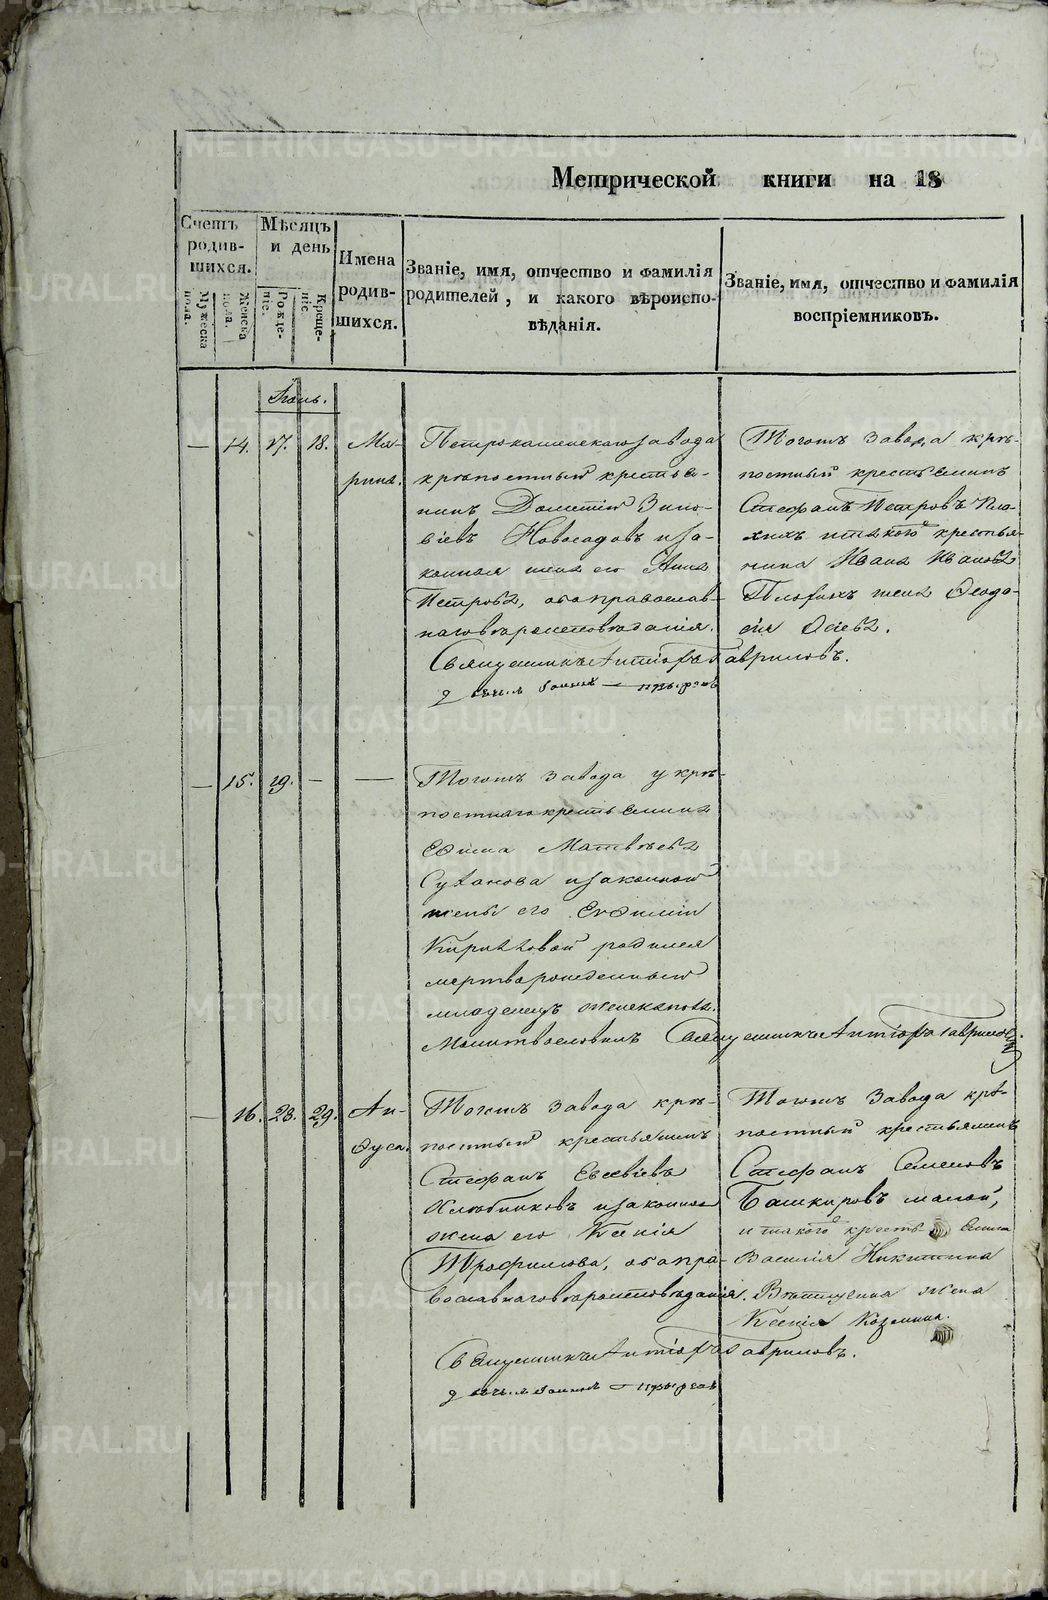 Метрической книги на 18
Счетъ родив-шихся.
Мужеска пола.
Женска пола.
Мѣсяцъ и день
Рожде-ніе.
Креще-ніе.
Имена родив-шихся.
Званіе, имя, отчество и фамилія
родителей, и какого вѣроиспо-
вѣданія.
Званіе, имя, отчество и фамилія
воспріемниковъ.
Іюль.
— 14. 17. 18. Ма-
рина.
Петрокаменскаго завода
крѣпостный крестья-
нинъ Дометій Зино-
віевъ Новосадовъ и за-
конная жена его Анна
Петрова, оба православ-
наго вѣроисповѣданія.
Тогожъ завода крѣ-
постный крестьянинъ
Стефанъ Петровъ Пло-
хихъ и такого крестья-
нина Ивана Иванова
Плохихъ жена Ѳеодо-
сія
Священникъ Гавриловъ.
— 15. 19. — —
Тогожъ завода у крѣ-
постнаго крестьянина
Еѳима Матвѣева
Суханова и законной
жены его Евѳиміи
Кириловой родился
мертворожденный
младенецъ женска пола.
Молитвословилъ Священникъ Гавриловъ
— 16. 28. 29. Ан-
ѳуса.
Тогожъ завода крѣ-
постный крестьянинъ
Стефанъ Евсевіевъ
и законная
жена его Ксенія
Трофимова, оба пра-
вославнаго вѣроисповѣданія.
Тогожъ завода крѣ-
постный крестьянинъ
Стефанъ Семеновъ
Башкировъ малой,
и такого крестьянина
Василія Никитина
жена
Ксенія Козмина.
Священникъ Гавриловъ.
METRIKI.GASO-URAL.RU